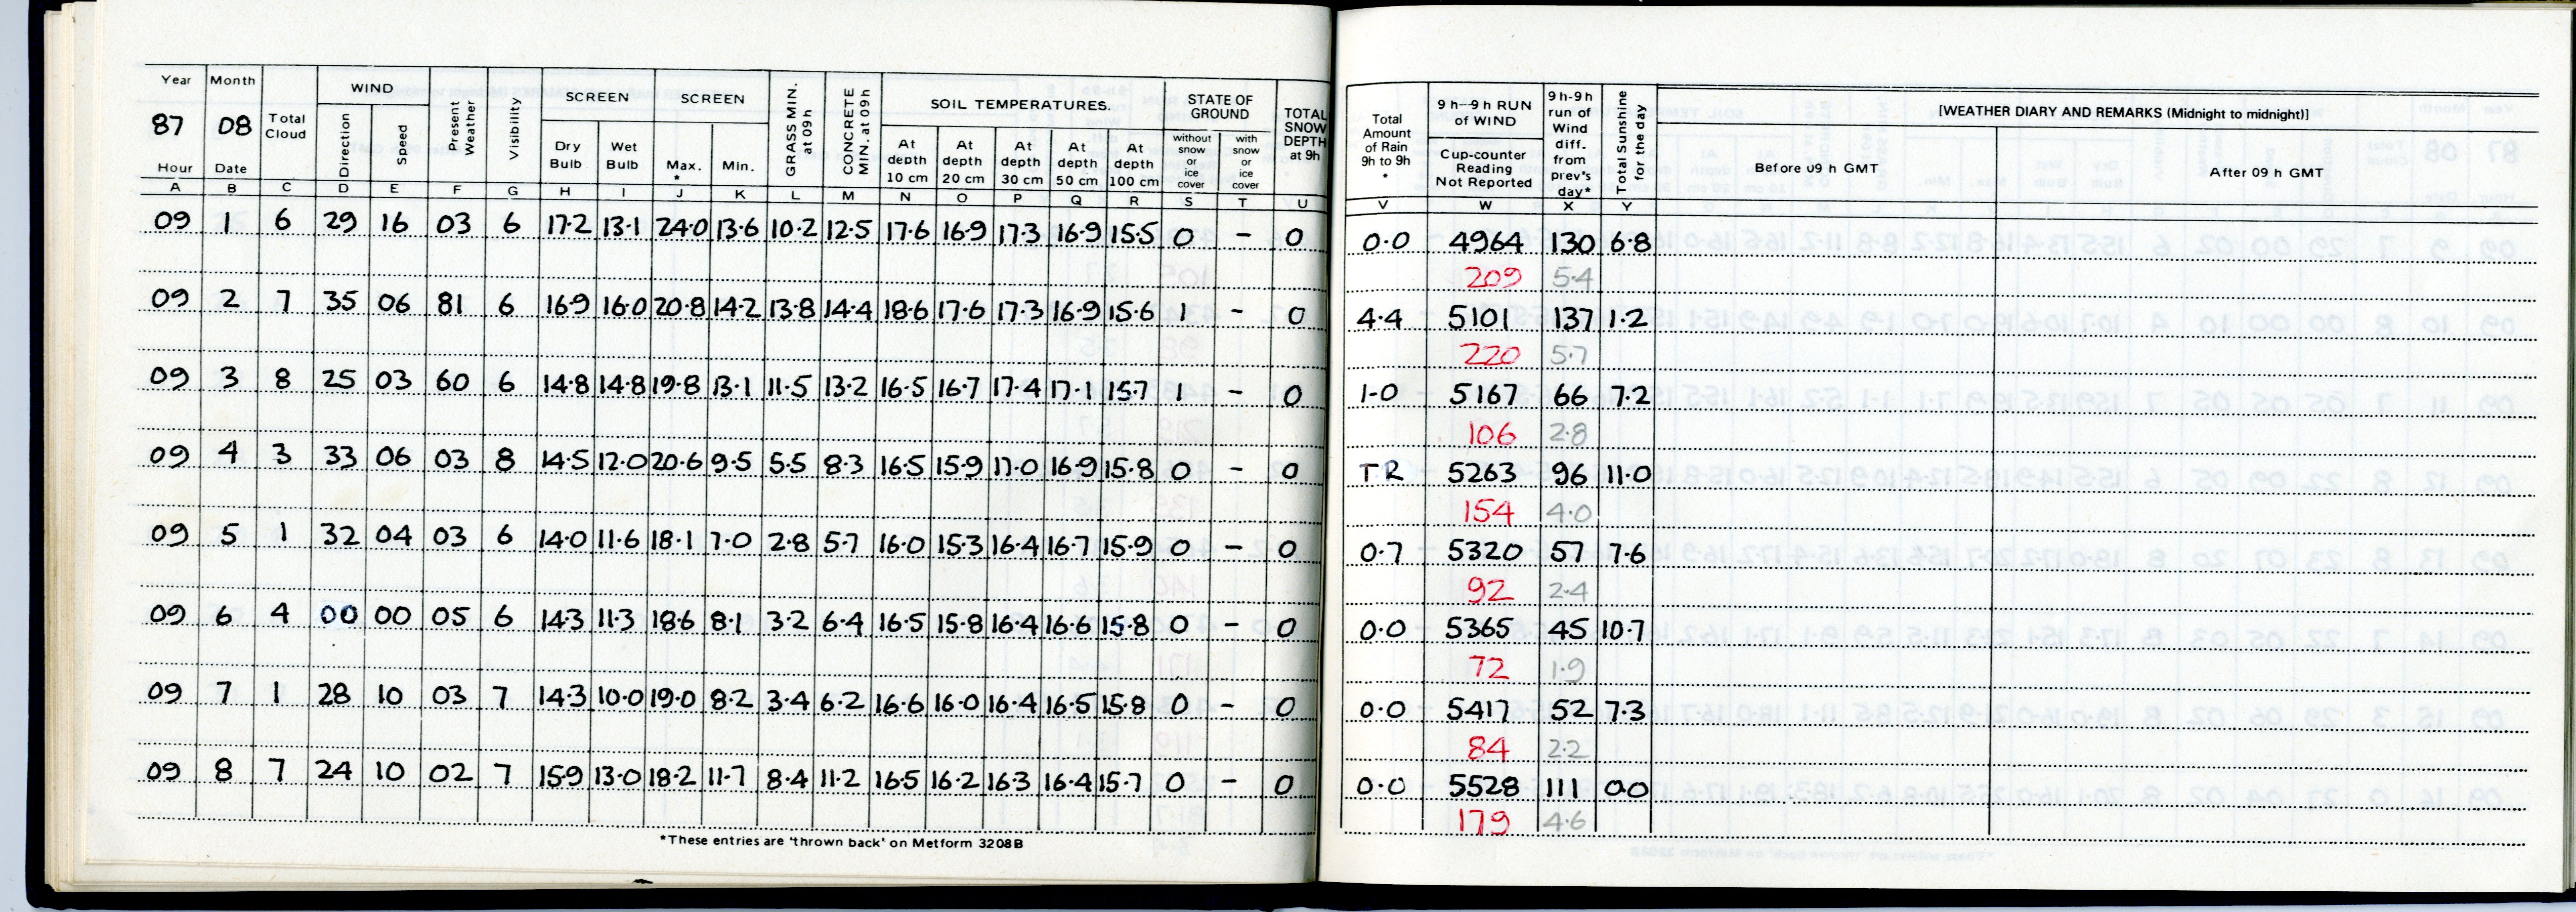 Year Month Total Cloud WIND Present Weather Visibility SCREEN SCREEN GRASS MIN. at 09h CONCRETE MIN. at 09h SOIL TEMPERATURES. STATE OF GROUND TOTAL SNOW DEPTH at 9h
87 08 Direction Speed Dry Bulb Wet Bulb Max. * Min. At depth 10 cm At depth 20 cm At depth 30 cm At depth 50 cm At depth 100 cm without snow or ice cover with snow or ice cover
Hour Date
A B C D E F G H I J K L M N O P Q R S T U
09 1 6 29 16 03 6 17.2 13.1 24.0 13.6 10.2 12.5 17.6 16.9 17.3 16.9 15.5 0 - 0
09 2 7 35 06 81 6 16.9 16.0 20.8 14.2 13.8 14.4 18.6 17.6 17.3 16.9 15.6 1 - 0
09 3 8 25 03 60 6 14.8 14.8 19.8 13.1 11.5 13.2 16.5 16.7 17.4 17.1 15.7 1 - 0
09 4 3 33 06 03 8 14.5 12.0 20.6 9.5 5.5 8.3 16.5 15.9 17.0 16.9 15.8 0 - 0
09 5 1 32 04 03 6 14.0 11.6 18.1 7.0 2.8 5.7 16.0 15.3 16.4 16.7 15.9 0 - 0
09 6 4 00 00 05 6 14.3 11.3 18.6 8.1 3.2 6.4 16.5 15.8 16.4 16.6 15.8 0 - 0
09 7 1 28 10 03 7 14.3 10.0 19.0 8.2 3.4 6.2 16.6 16.0 16.4 16.5 15.8 0 - 0
09 8 7 24 10 02 7 15.9 13.0 18.2 11.7 8.4 11.2 16.5 16.2 16.3 16.4 15.7 0 - 0
*These entries are 'thrown back' on Metform 3208B
Total Amount of Rain 9h to 9h * 9 h-9 h RUN of WIND 9h-9h run of Wind diff. from prev's day* Total Sunshine for the day [WEATHER DIARY AND REMARKS (Midnight to midnight)]
Cup-counter Reading Not Reported Before 09 h GMT After 09 h GMT
V W X Y
0.0 4964 130 6.8
209 5.4
4.4 5101 137 1.2
220 5.7
1.0 5167 66 7.2
106 2.8
TR 5263 96 11.0
154 4.0
0.7 5320 57 7.6
92 2.4
0.0 5365 45 10.7
72 1.9
0.0 5417 52 7.3
84 2.2
0.0 5528 111 0.0
179 4.6